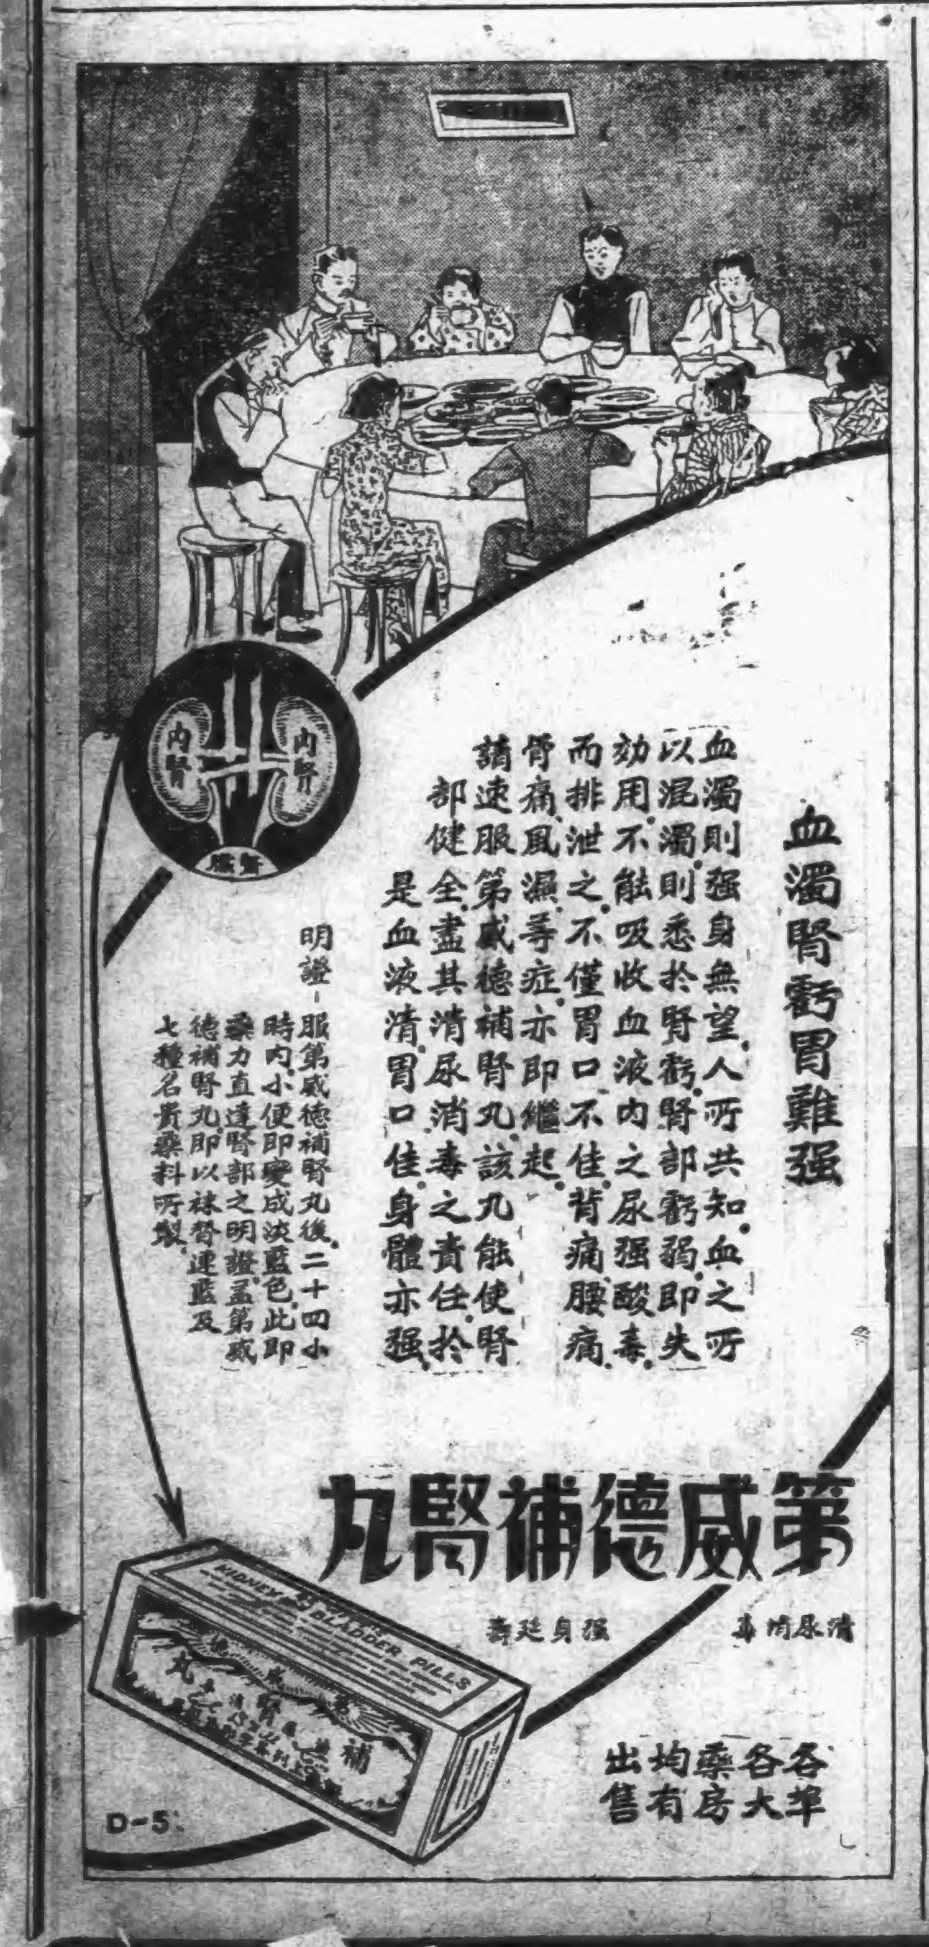 血濁腎虧胃難强
血濁則强身無望.人所共知.血之所
以混濁.則悉於腎虧.腎部虧弱.即失
効用.不能吸收血液内之尿强酸毒.
而排泄之.不僅胃口不佳.背痛腰痛.
骨痛風濕等症.亦即繼起.
請速服第威德補腎丸.該丸能使腎
部健全.盡其清尿消毒之責任.於
是血液清.胃口佳.身體亦强.
明證-服第威德補腎丸後.二十四小
時内小便即變成淡藍色.此即
藥力直達腎部之明證.蓋第威
德補腎丸即以袜督連藍及
七種名貴藥料所製.
内腎
内腎
第威德補腎丸
清尿消毒
强身延壽
KIDNEY
BLADDER PILLS
補
腎
丸
各埠各大藥房均有出售
D-5